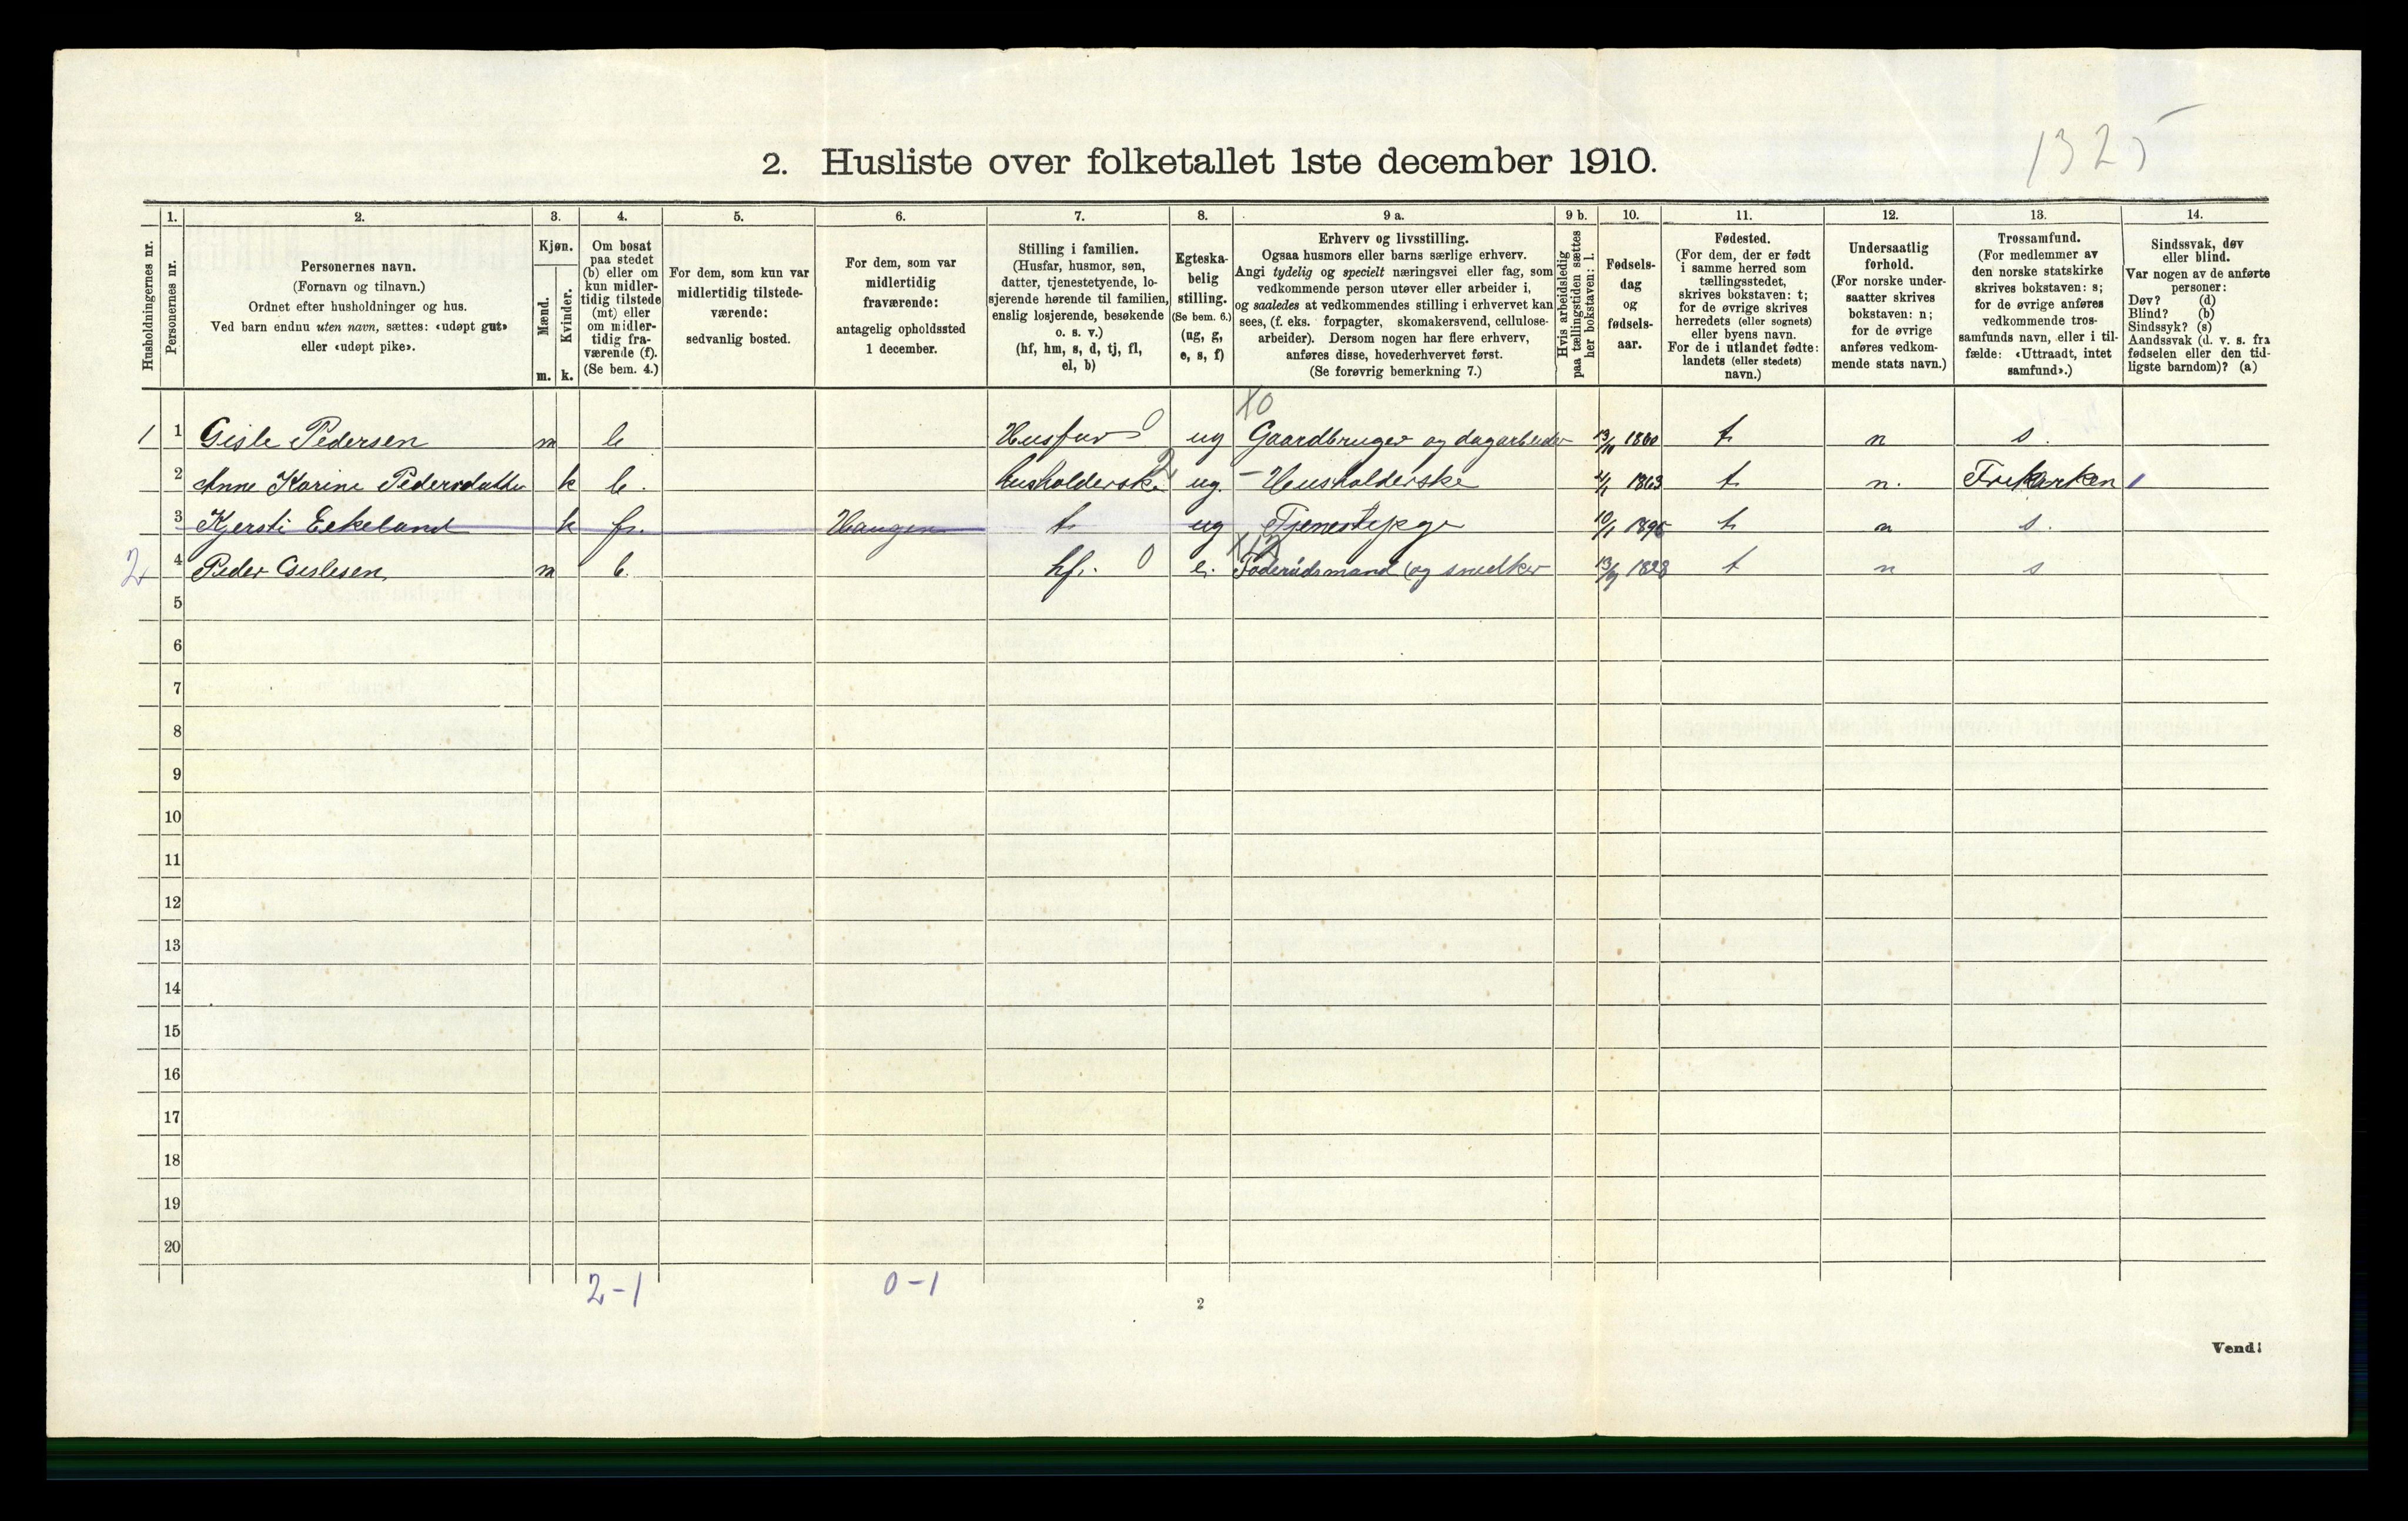 1325
2. Husliste over folketallet 1ste december 1910.
Husholdningernes nr.
1.
Personernes nr.
2.
Personernes navn.
(Fornavn og tilnavn.)
Ordnet efter husholdninger og hus.
Ved barn endnu uten navn, sættes: «udøpt gut»
eller «udøpt pike».
3.
Kjøn.
Mænd.
m.
Kvinder.
k.
4.
Om bosat
paa stedet
(b) eller om
kun midler-
tidig tilstede
(mt) eller
om midler-
tidig fra-
værende (f).
(Se bem. 4.)
5.
For dem, som kun var
midlertidig tilstede-
værende:
sedvanlig bosted.
6.
For dem, som var
midlertidig
fraværende:
antagelig opholdssted
1 december.
7.
Stilling i familien.
(Husfar, husmor, søn,
datter, tjenestetyende, lo-
sjerende hørende til familien,
enslig losjerende, besøkende
o. s. v.)
(hf, hm, s, d, tj, fl,
el, b)
8.
Egteska-
belig
stilling.
(Se bem. 6.)
(ug, g,
e, s, f)
9 a.
Erhverv og livsstilling.
Ogsaa husmors eller barns særlige erhverv.
Angi tydelig og specielt næringsvei eller fag, som
vedkommende person utøver eller arbeider i,
og saaledes at vedkommendes stilling i erhvervet kan
sees, (f. eks. forpagter, skomakersvend, cellulose-
arbeider). Dersom nogen har flere erhverv,
anføres disse, hovederhvervet først.
(Se forøvrig bemerkning 7.)
9 b.
Hvis arbeidsledig
paa tællingstiden sættes
her bokstaven: l.
10.
Fødsels-
dag
og
fødsels-
aar.
11.
Fødested.
(For dem, der er født
i samme herred som
tællingsstedet,
skrives bokstaven: t;
for de øvrige skrives
herredets (eller sognets)
eller byens navn.
For de i utlandet fødte:
landets (eller stedets)
navn.)
12.
Undersaatlig
forhold.
(For norske under-
saatter skrives
bokstaven: n;
for de øvrige
anføres vedkom-
mende stats navn.)
13.
Trossamfund.
(For medlemmer av
den norske statskirke
skrives bokstaven: s;
for de øvrige anføres
vedkommende tros-
samfunds navn, eller i til-
fælde: «Uttraadt, intet
samfund».)
14.
Sindssvak, døv
eller blind.
Var nogen av de anførte
personer:
Døv? (d)
Blind? (b)
Sindssyk? (s)
Aandssvak (d. v. s. fra
fødselen eller den tid-
ligste barndom)? (a)
X0
1 1 Gisle Pedersen m b Husfar 0 ug Gaardbruger og dagarbeider 13/10 1860 t n s.
2 Anne Karine Pedersdatter k b. husholderske 2 ug. - Husholderske 1863 t n. Frikirken 1
3 Kjersti Eikeland k fr. Haugen t ug Tjenestepige 10/1 t n s.
X12
2 4 Peder Gislesen m b. hf. 0 e. Føderådsmand (og snedker 13/9 1828 t n s
5
6
7
8
9
10
11
12
13
14
15
16
17
18
19
20
2-1 0-1
2
Vend!